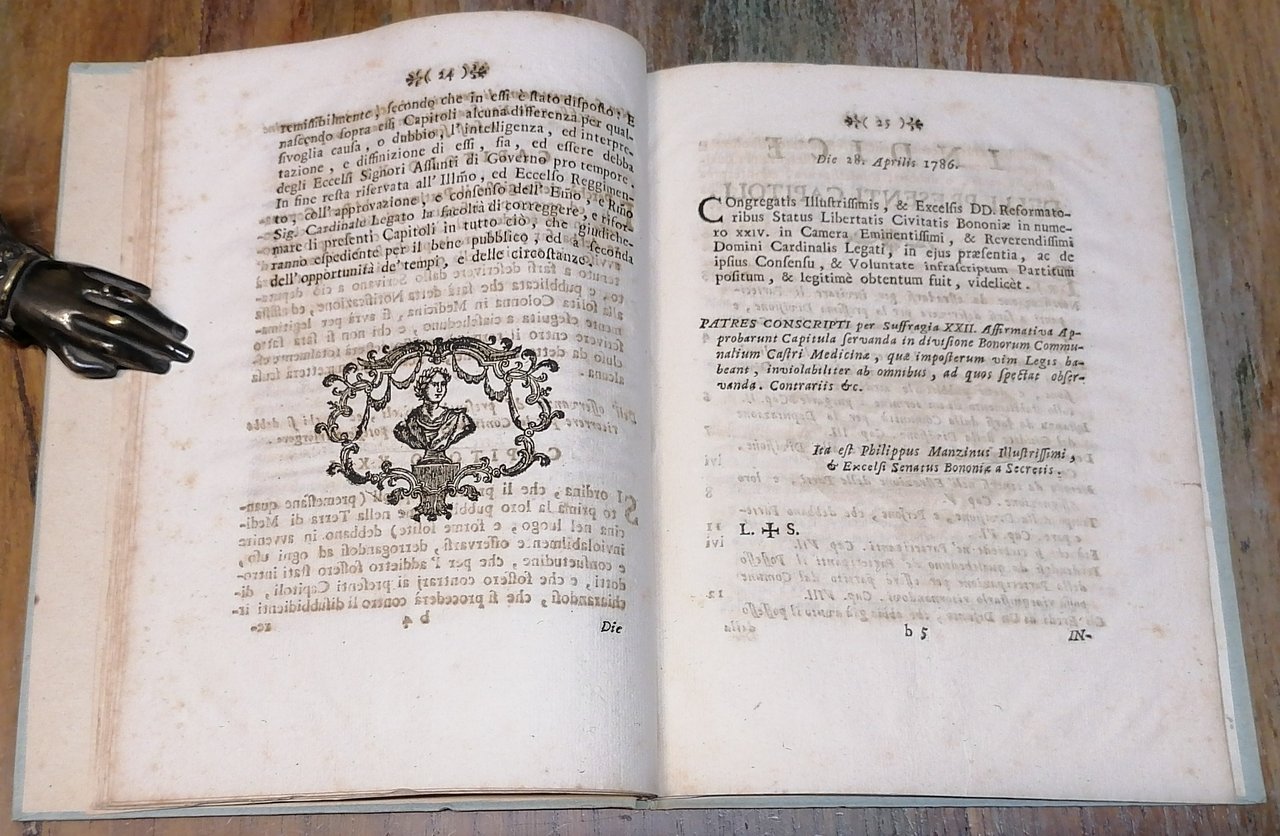 ( 24 )
remissibilmente, secondo che in essi è stato disposto: E
nascendo sopra essi Capitoli alcuna differenza per qual-
sivoglia causa, o dubbio, l'intelligenza, ed interpre-
tazione, e diffinizione di essi, sia, ed essere debba
degli Eccelsi Signori Assunti di Governo pro tempore.
In fine resta riservata all' Illmo, ed Eccelso Reggimen-
to, coll' approvazione, e consenso dell' Emo, e Rmo
Sig. Cardinale Legato la facoltà di correggere, e rifor-
mare li presenti Capitoli in tutto ciò, che giudiche-
ranno espediente per il bene pubblico, ed a seconda
dell' opportunità de' tempi, e delle circostanze.
Die
( 25 )
Die 28. Aprilis 1786.
COngregatis Illustrissimis, & Excelsis DD. Reformato-
ribus Status Libertatis Civitatis Bononiæ in nume-
ro xxiv. in Camera Eminentissimi, & Reverendissimi
Domini Cardinalis Legati, in ejus præsentia, ac de
ipsius Consensu, & Voluntate infrascriptum Partitum
positum, & legitimè obtentum fuit, videlicèt.
PATRES CONSCRIPTI per Suffragia XXII. Affirmativa Ap-
probarunt Capitula servanda in divisione Bonorum Commu-
nalium Castri Medicinæ, quæ imposterum vim Legis ha-
beant, inviolabiliter ab omnibus, ad quos spectat obser-
vanda. Contrariis &c.
Ita est Philippus Manzinus Illustrissimi,
& Excelsi Senatus Bononiæ a Secretis.
L. ✠ S.
b 5
IN-